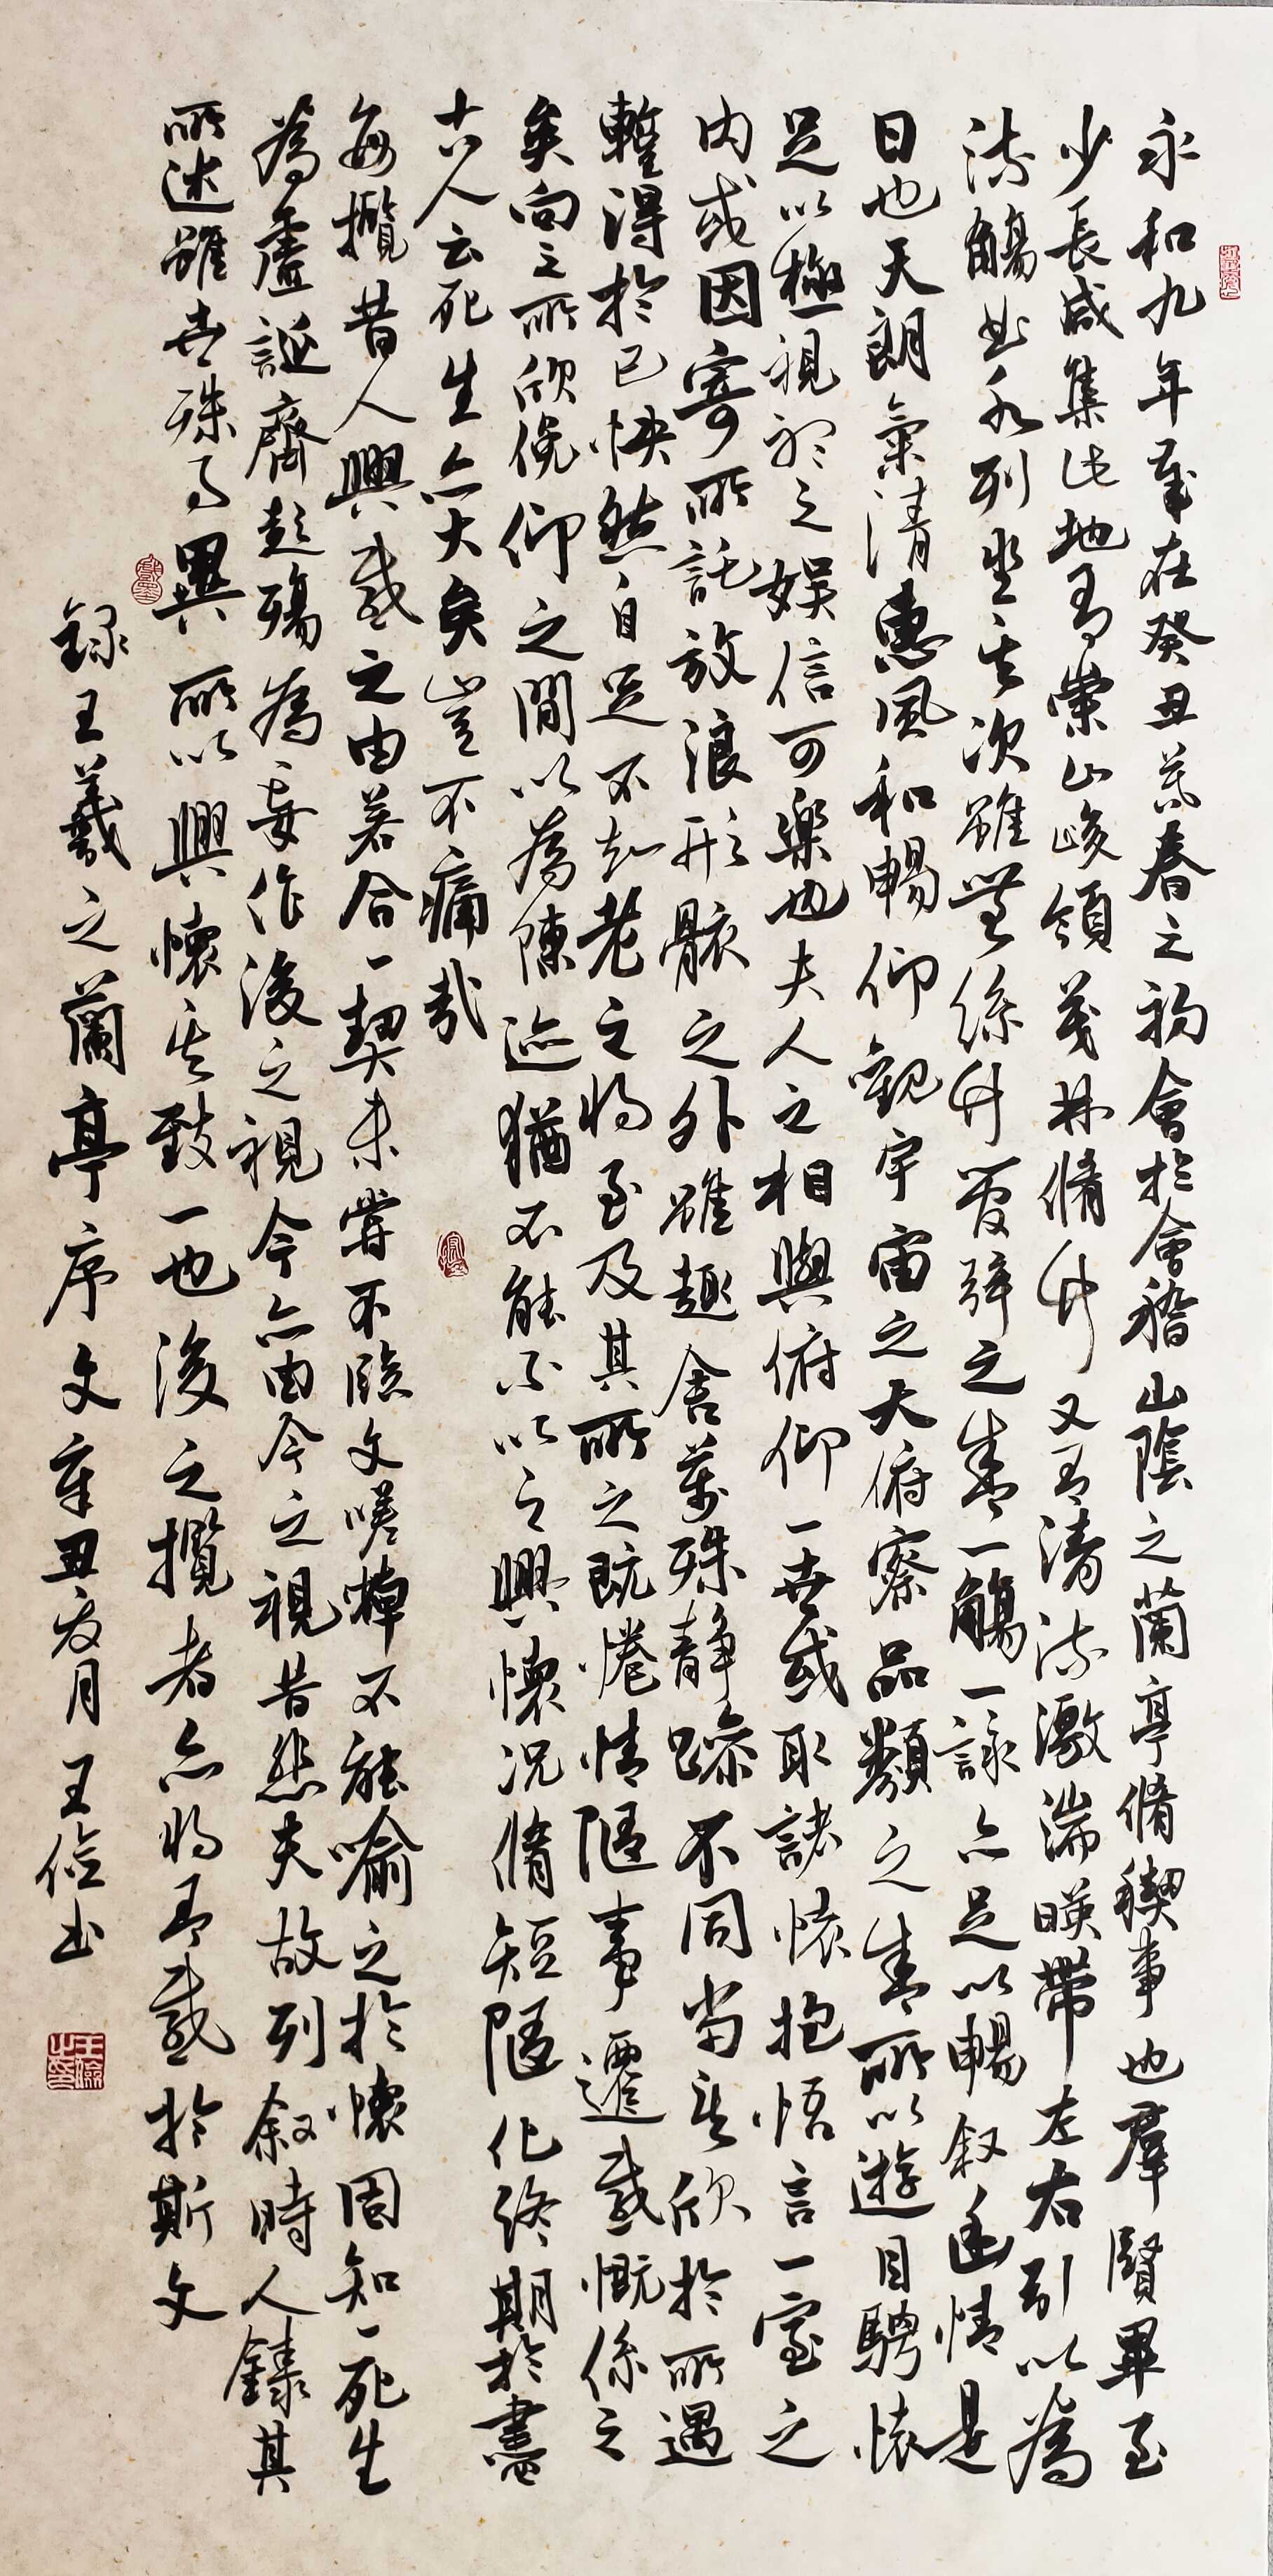 永和九年歲在癸丑暮春之初會於會稽山陰之蘭亭脩稧事也羣賢畢至
少長咸集此地有崇山峻領茂林脩竹又有清流激湍暎帶左右引以為
流觴曲水列坐其次雖無絲竹管弦之盛一觴一詠亦足以暢叙幽情是
日也天朗氣清惠風和暢仰觀宇宙之大俯察品類之盛所以遊目騁懷
足以極視聽之娛信可樂也夫人之相與俯仰一世或取諸懷抱悟言一室之
内或因寄所託放浪形骸之外雖趣舍萬殊静躁不同當其欣於所遇
蹔得於己怏然自足不知老之將至及其所之既惓情隨事遷感慨係之
矣向之所欣俛仰之間以為陳迹猶不能不以之興懷况脩短隨化終期於盡
古人云死生亦大矣豈不痛哉
每攬昔人興感之由若合一契未嘗不臨文嗟悼不能喻之於懷固知一死生
為虛誕齊彭殤為妄作後之視今亦由今之視昔悲夫故列叙時人錄其
所述雖世殊事異所以興懷其致一也後之攬者亦將有感於斯文
錄王羲之蘭亭序文辛丑夏月王俭书